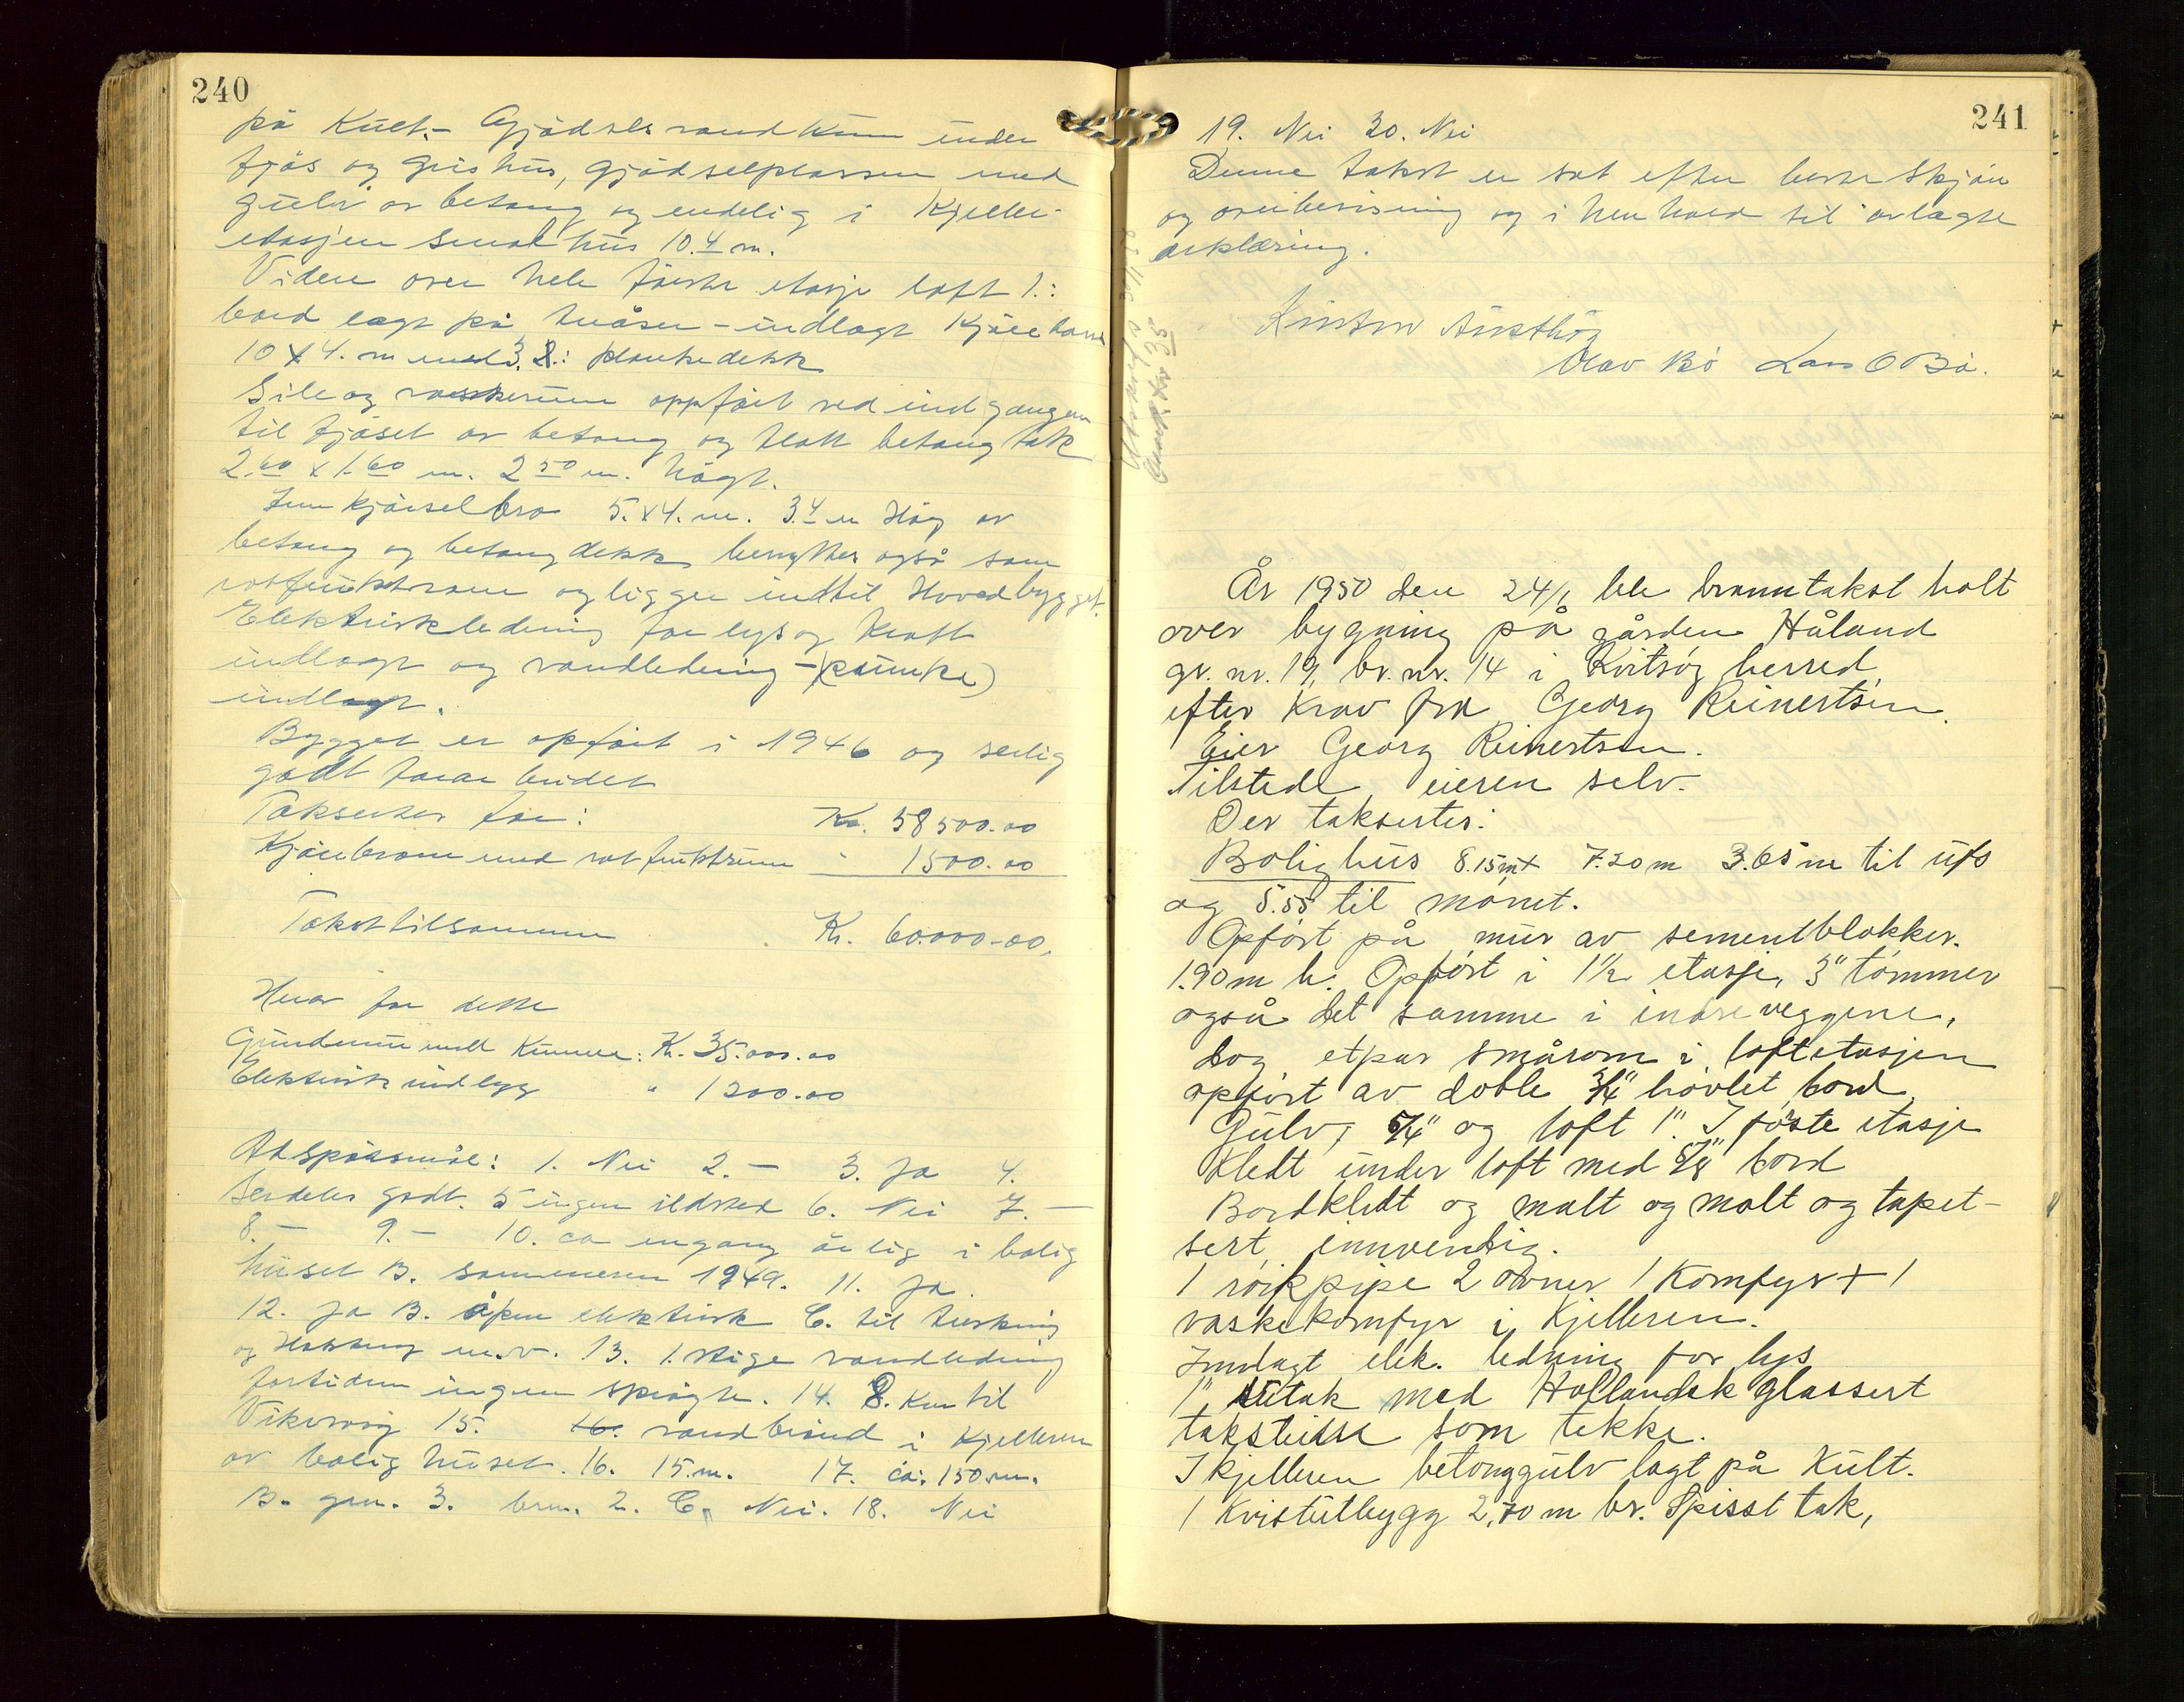 240
på Kult.- Gjødselsvandkum under
fjøs og grishus, gjødselplassen med
gulv av betong og endelig i Kjeller-
etasjen smalehus 10.4 m.
Videre over hele første etasje loft 1.:
bord lagt på tvåser - indlagt Kjørebane
10 x 4. m med 3. 2.: plankedekk
Sile og vaskerum oppført ved indgangen
til fjøset av betong og flatt betong tak
2.60 x 1.60 m. 2.50 m. høgt.
Innkjørselbro 5. x 4. m. 3.4 m Høg av
betong og betong dekk benyttes også som
rotfruktrom og ligger indtil Hovedbygget.
Elektriskledning for lys og Kraft
indlagt og vandledning - (pumpe)
indlagt.
Bygget er opført i 1946 og serlig
godt forarbeidet
Takseres for: Kr. 58500.00
Kjørebroen med rotfruktrum " 1500.00
Takst tilsammen Kr. 60.000.00,
Herav for dette
Grundmur med Kummer: Kr. 35.000.00
Elektrisk indlegg " 1200.00
Ad spørsmål: 1. Nei 2. - 3. Ja 4.
serdeles godt. 5 ingen ildsted 6. Nei 7. -
8. - 9. - 10. ca engang årlig i bolig
huset B. sommeren 1949. 11. Ja.
12. Ja B. åpen elektrisk C. til tresking
og Hakking m.v. 13. 1. stige vandledning
fortiden ingen sprøyte. 14. 8. Km til
Vikevåg 15. 16. vandbrønd i Kjelleren
av bolig huset. 16. 15. m. 17. ca: 150. m.
B. grn. 3. brn. 2. C. Nei. 18. Nei
241
19. Nei 20. Nei
Denne takst er sat efter beste Skjøn
og overbevisning og i henhold til avlagte
erklæring.
Olav Bø Lars O Bø.
År 1950 den 24/1 ble branntakst holt
over bygning på gården Håland
gr. nr. 19, br. nr. 14 i Kvitsøy herred
efter Krav fra Georg Reinertsen.
Eier Georg Reinertsen.
Tilstede eieren selv.
Der taksertes:
Bolighus 8.15 m x 7.20 m 3.65 m til ufs
og 5.55 til mønet.
Opført på mur av sementblokker.
1.90 m h. Opført i 1½ etasje, 3" tømmer
også det samme i indre veggene,
dog etpar smårom i loftetasjen
opført av doble 3/4" høvlet bord
Gulv 5/4" og loft 1". I føste etasje
Kledt under loft med 5/8" bord
Bordkledt og malt og malt og tapet-
sert innvendig.
1 røikpipe 2 ovner 1 Komfyr + 1
vaskekomfyr i Kjelleren.
Innlagt elek. ledning for lys
1" sutak med Hollandsk glassert
taksteisse som tekke.
I kjelleren betonggulv lagt på Kult.
1 Kvistutbygg 2,70 m br. Spisst tak,